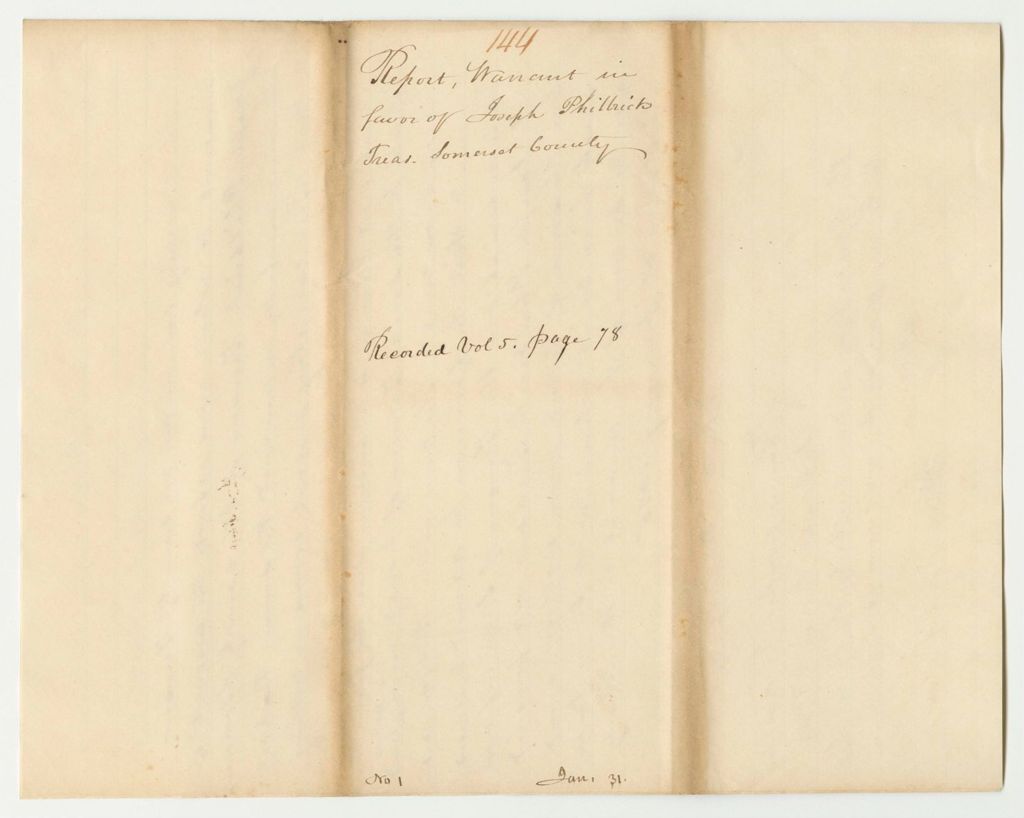 144
Report, Warrant in
favor of Joseph Philbrick
Treas. Somerset County
Recorded Vol 5. page 78
No 1 Jan. 31.